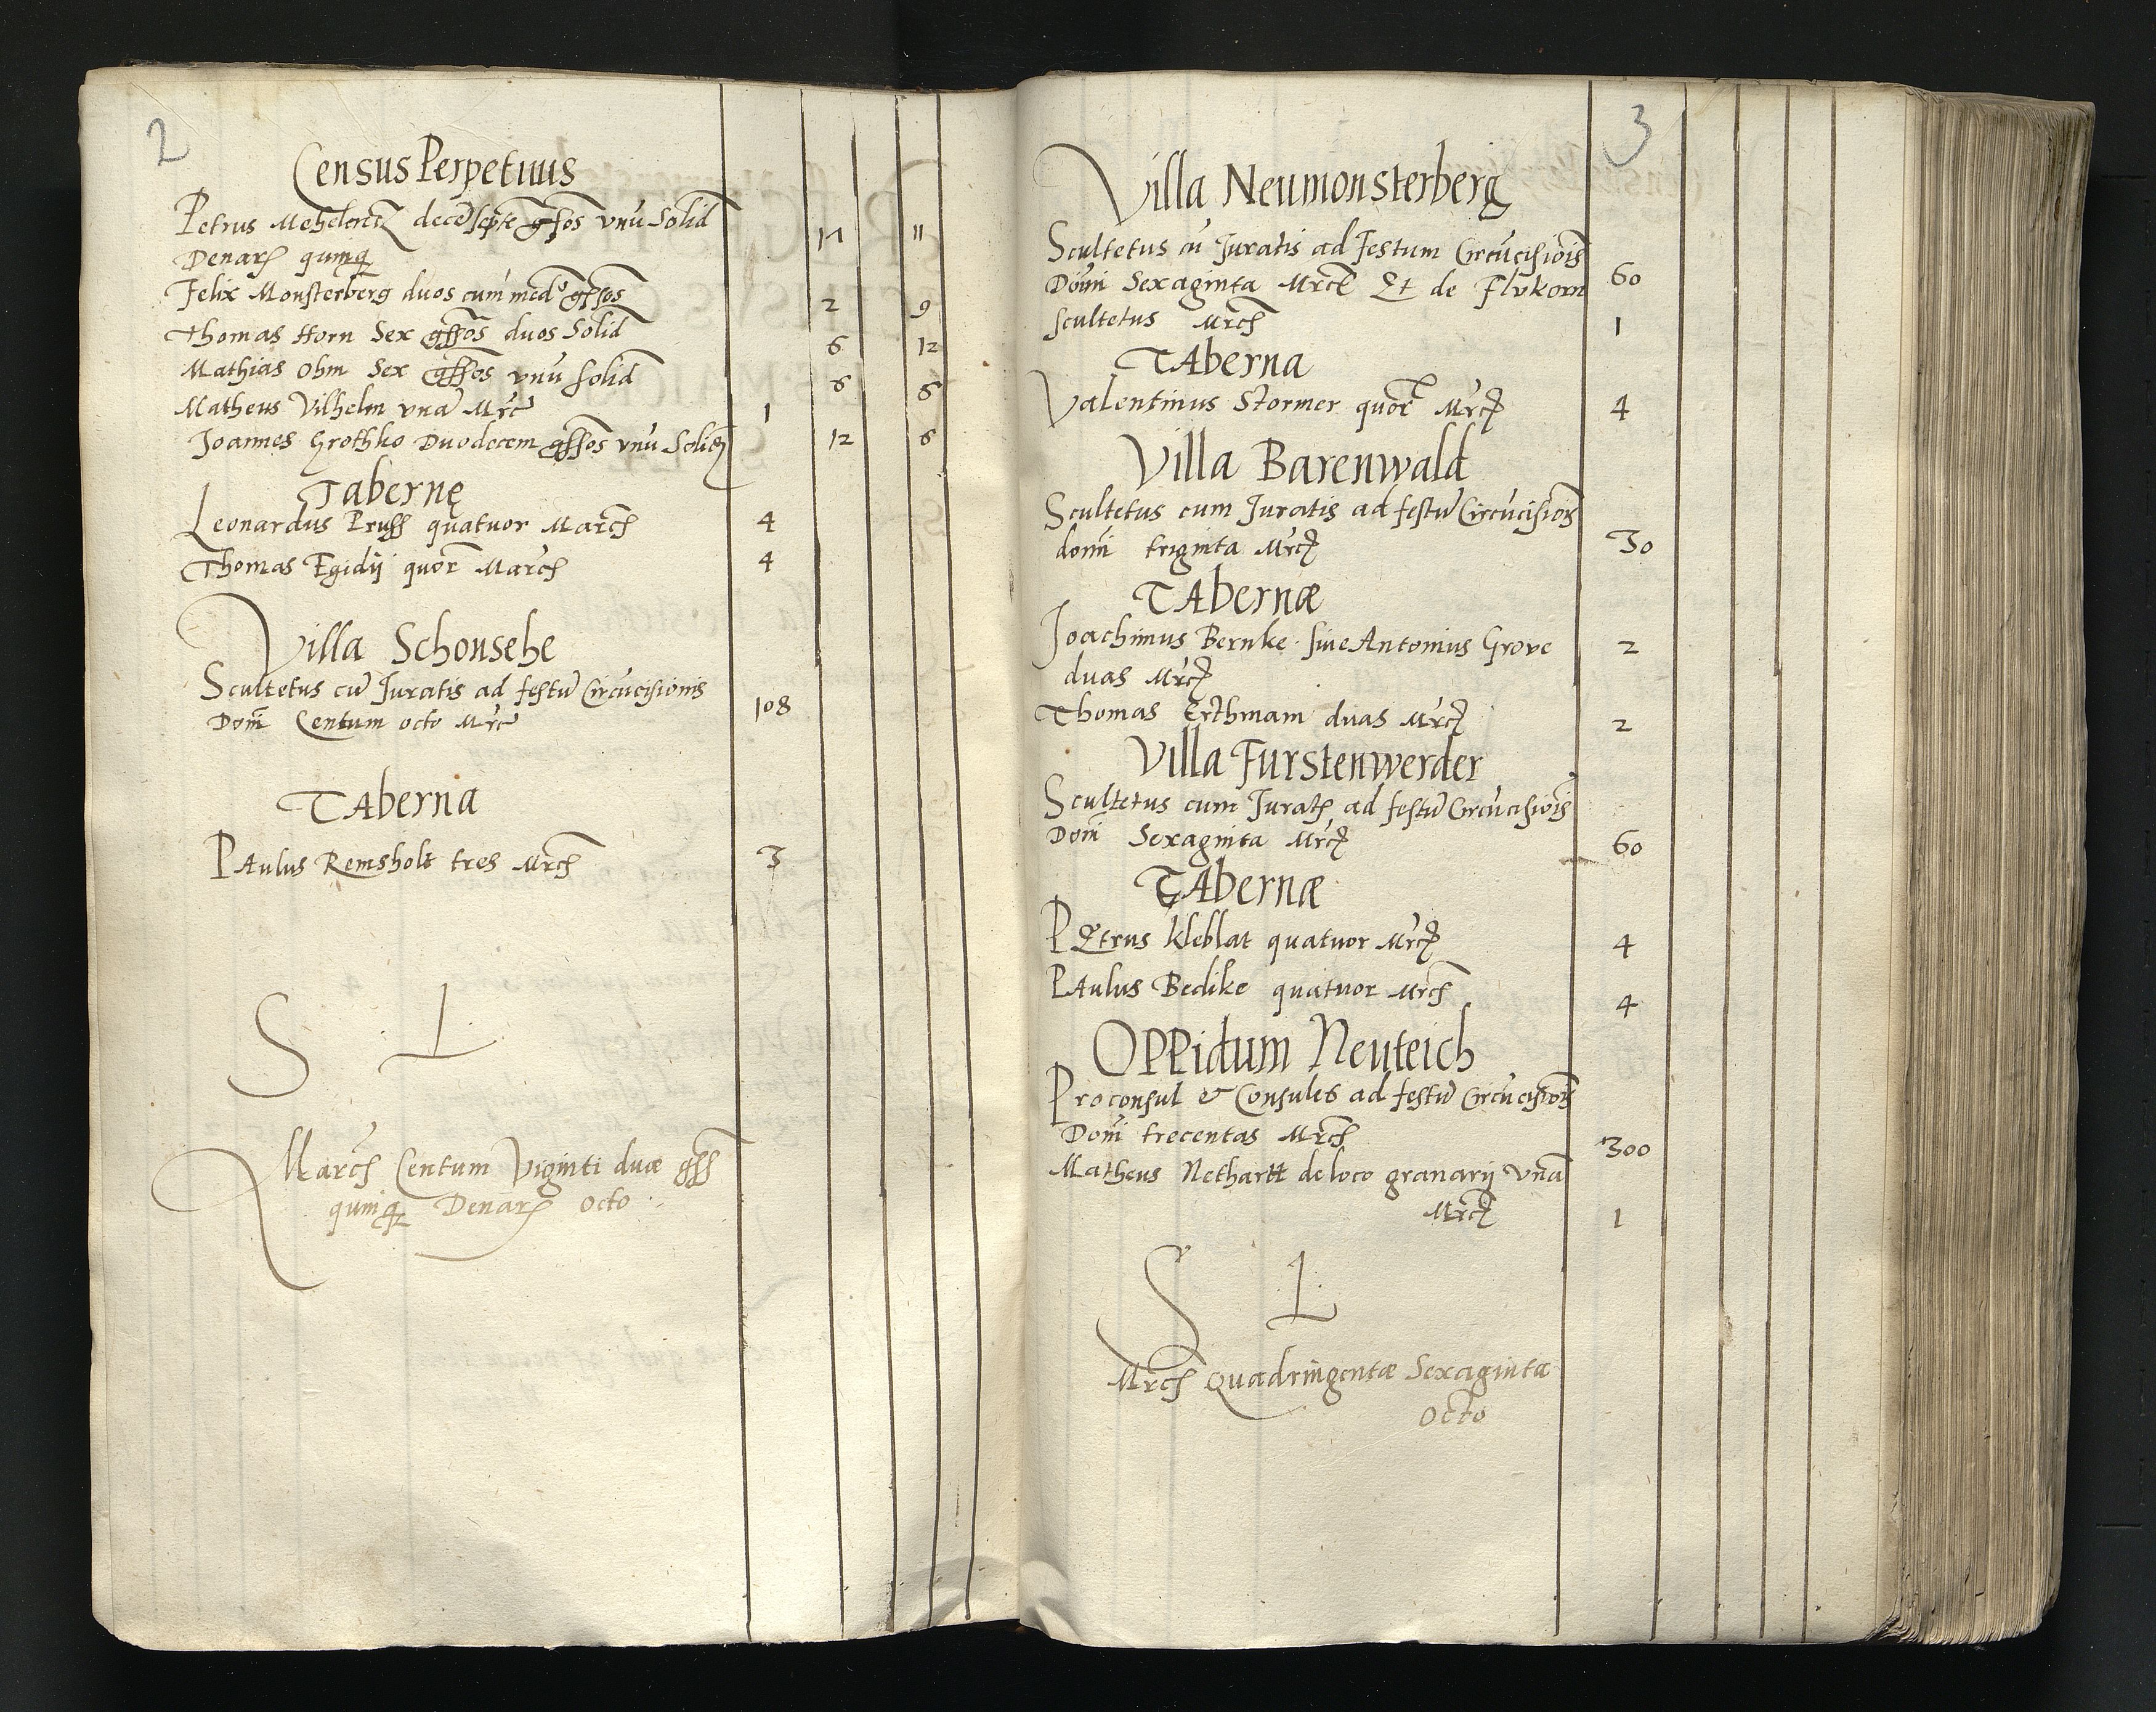 2
Census Perpetuus
Petrus decē septē gſſos vnū Solid 17 11
Denarꝭ quinqꝫ
Felix Monsterberg duos cum med° gſſos 2 9
Thomas Horn Sex gſſos duos Solid 6 12
Mathias Ohm Sex gſſos vnū solid 6 6
Matheus Vilhelm vnā Mrc 1
Joannes Grothko Duodecem gſſos vnū Solid 12 6
Tabernę
Leonardus Pruss quatuor March 4
Thomas Egidij quor March 4
Villa Schonsehe
Scultetus cū Juratis ad festū Circūcisionis
Dom̄ Centum octo Mrc 108
TAberna
PAulus Remsholt tres Mrch 3
S L
March Centum Viginti duæ gſſ
quinqꝫ Denarꝭ octo
3
Villa Neumonsterberg
Scultetus cū Juratis ad Festum Circūcisiois
Domi Sexaginta Mrc Et de Flvkorn 60
scultetus Mrch 1
TAberna
Valentinus Stormer quor Mrc 4
Villa Barenwald
Scultetus cum Juratis ad festū Circūcision
domi triginta Mrc 30
TAbernæ
Joachimus Bernke siue Antonius Grove 2
duas Mrc
Thomas Erthmam duas Mrc 2
Villa Furstenwerder
Scultetus cum Juratꝭ ad festū Circūcisiois
Domi Sexaginta Mrc 60
TAbernæ
PEtrus Kleblat quatuor Mrc 4
PAulus Bedike quatuor Mrch 4
OPPidum Neuteich
Proconsul & Consules ad festū Circūcisiois
Domi trecentas Mrch 300
Matheus Nethartt de loco granarij Vnā
Mrc 1
S L
Mrch Quadringentæ Sexaginta
Octo